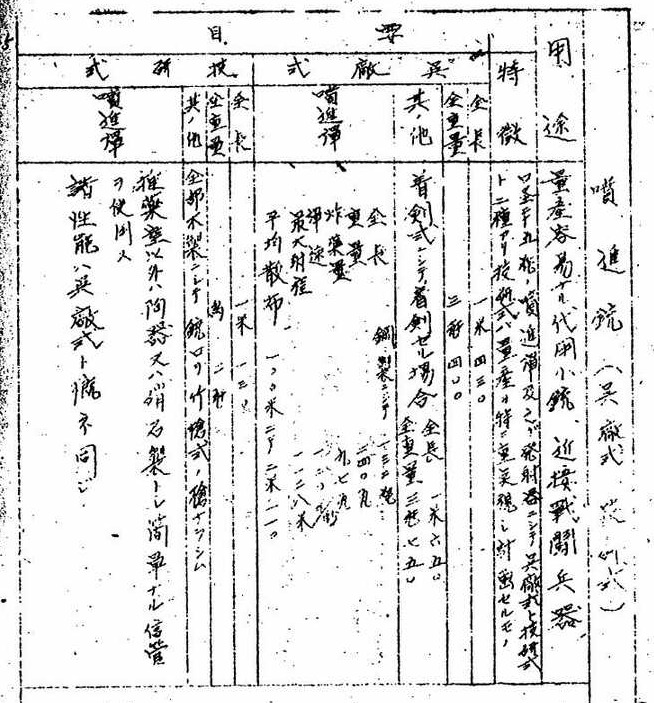 噴進銃(呉廠式 技研式)
用途
量産容易ナル代用小銃、近接戦闘兵器
特徴
口
粍ノ噴進弾及之ガ発射器ニシテ呉廠式ト技研式
ト二種アリ技研式ハ量産ヲ特ニ重
シ計画セルモノ
要目
呉廠式
全長
一米四三〇
全重量
三瓩四〇〇
其ノ他
着剣式ニシテ着剣セル場合
全長 一米六五〇
全重量 三瓩七五〇
噴進弾
鋼製ニシテ
全長 一三二粍
重量 二四〇瓦
炸薬量 九、七瓦
弾速
米/秒
最大射程 一一二八米
平均散布 一〇〇米ニテ二米一一〇
技研式
全長
一米一三〇
全重量
約二瓩
其ノ他
全部木製ニシテ銃口ヲ竹槍式ノ槍
噴進弾
推薬室以外ハ陶器又ハ硝石製トシ簡単ナル信管
ヲ使用ス
諸性能ハ呉廠式ト概ネ同ジ